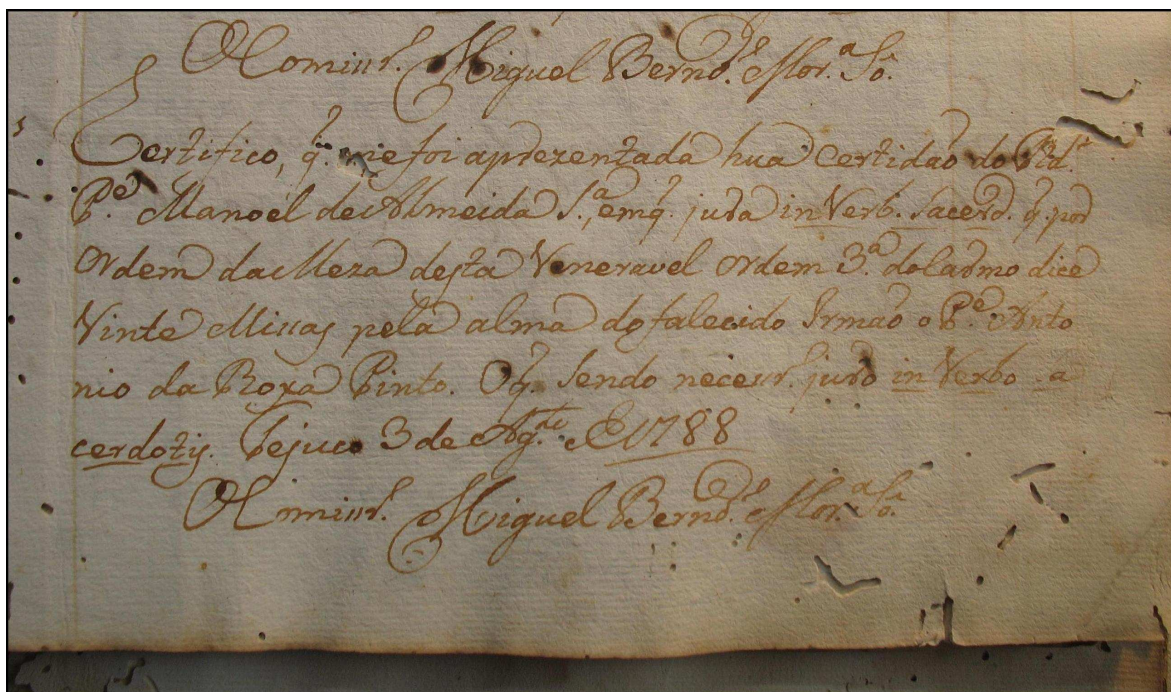 O Comissr. Miguel Bernd.es Mor.a So.
Certifico, q. me foi aprezentada hua certidaõ do Rd.o
P.e Manoel de Almeida S.a, em q. jura in Verb. Sacerd. q. por
Ordem da Meza desta Veneravel Ordem 3.a do Carmo dice
Vinte Missas pela alma do falecido Irmaõ o P.e Anto
nio da Roxa Pinto. O q. Sendo necessr. juro in Verbo a
cerdotis. Tejuco 3 de Ag.to de 1788
O Comissr. Miguel Bernd.es Mor.a So.